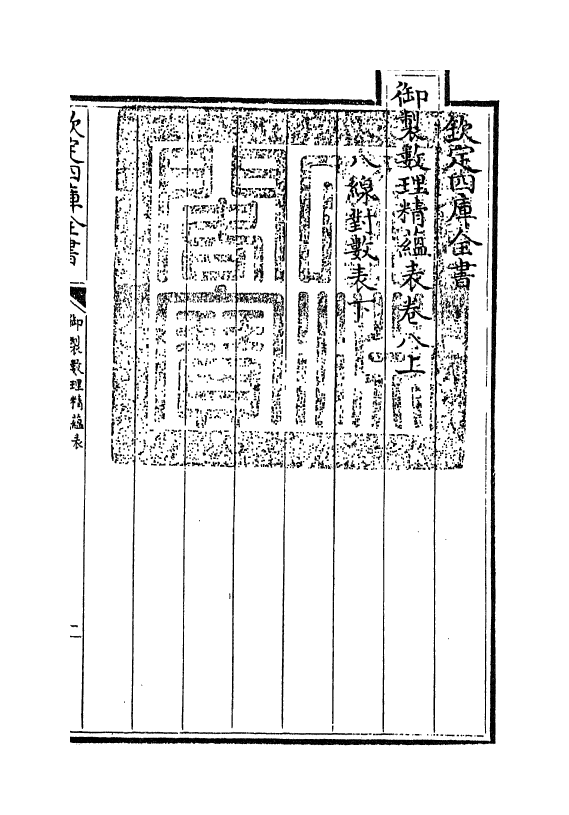 欽定四庫全書
御製數理精蘊表卷八上
八線對數表下
欽定四庫全書
御製數理精蘊表
二